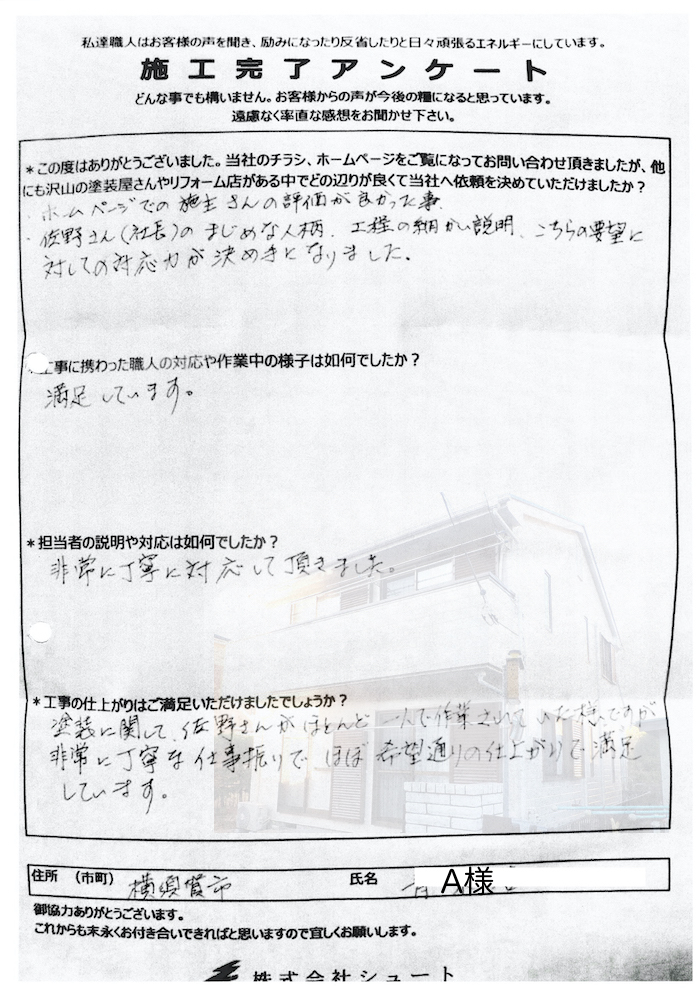 私達職人はお客様の声を聞き、励みになったり反省したりと日々頑張るエネルギーにしています。
施工完了アンケート
どんな事でも構いません。お客様からの声が今後の糧になると思っています。
遠慮なく率直な感想をお聞かせ下さい。
＊この度はありがとうございました。当社のチラシ、ホームページをご覧になってお問い合わせ頂きましたが、他
にも沢山の塗装屋さんやリフォーム店がある中でどの辺りが良くて当社へ依頼を決めていただけましたか？
・ホームページでの施主さんの評価が良かった事、
・佐野さん（社長）のまじめな人柄、工程の細かい説明、こちらの要望に
対しての対応力が決め手となりました。
工事に携わった職人の対応や作業中の様子は如何でしたか？
満足しています。
＊担当者の説明や対応は如何でしたか？
非常に丁寧に対応して頂きました。
＊工事の仕上がりはご満足いただけましたでしょうか？
塗装に関して、佐野さんがほとんど一人で作業されていた様ですが
非常に丁寧な仕事振りでほぼ希望通りの仕上がりで満足
しています。
住所 （市町） 横須賀市 氏名 A様
御協力ありがとうございます。
これからも末永くお付き合いできればと思いますので宜しくお願いします。
株式会社シュート